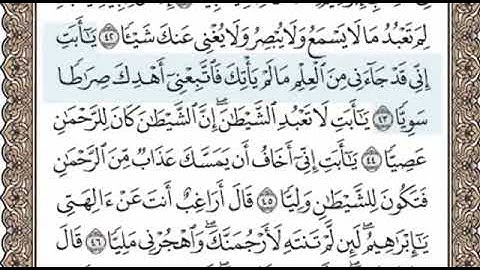 لِمَ تَعۡبُدُ مَا لَا يَسۡمَعُ وَلَا يُبۡصِرُ وَلَا يُغۡنِي عَنكَ شَيۡـٔٗا ٤٢ يَٰٓأَبَتِ
إِنِّي قَدۡ جَآءَنِي مِنَ ٱلۡعِلۡمِ مَا لَمۡ يَأۡتِكَ فَٱتَّبِعۡنِيٓ أَهۡدِكَ صِرَٰطٗا
سَوِيّٗا ٤٣ يَٰٓأَبَتِ لَا تَعۡبُدِ ٱلشَّيۡطَٰنَۖ إِنَّ ٱلشَّيۡطَٰنَ كَانَ لِلرَّحۡمَٰنِ
عَصِيّٗا ٤٤ يَٰٓأَبَتِ إِنِّيٓ أَخَافُ أَن يَمَسَّكَ عَذَابٞ مِّنَ ٱلرَّحۡمَٰنِ
فَتَكُونَ لِلشَّيۡطَٰنِ وَلِيّٗا ٤٥ قَالَ أَرَاغِبٌ أَنتَ عَنۡ ءَالِهَتِي
يَٰٓإِبۡرَٰهِيمُۖ لَئِن لَّمۡ تَنتَهِ لَأَرۡجُمَنَّكَۖ وَٱهۡجُرۡنِي مَلِيّٗا ٤٦ قَالَ